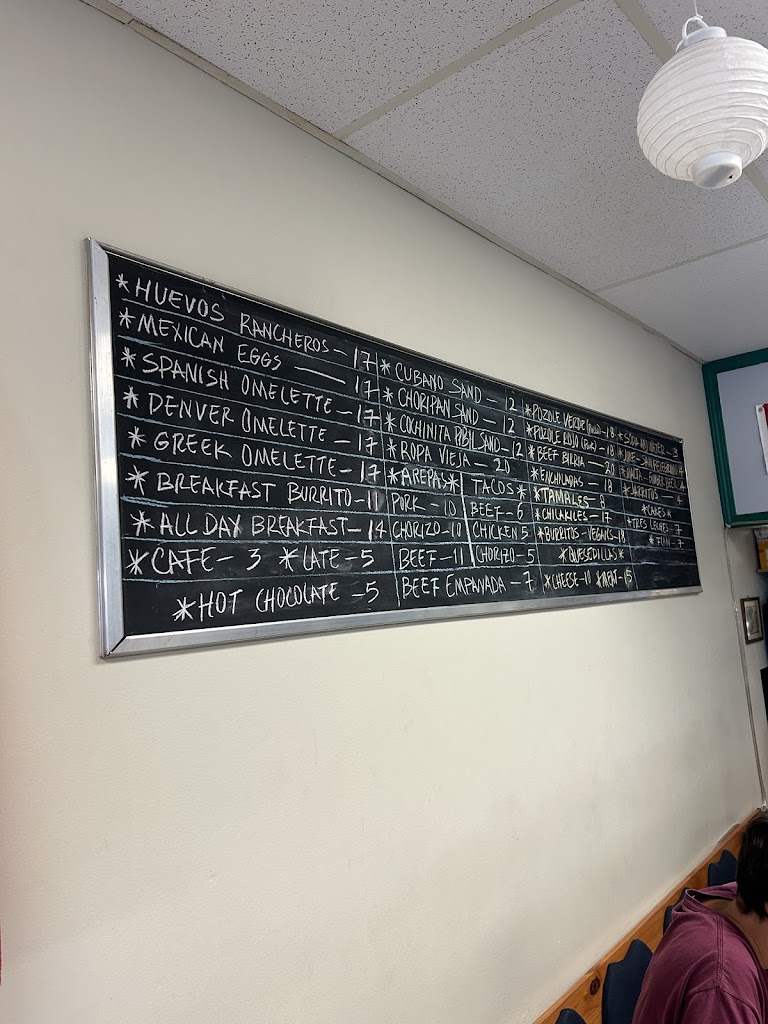 *HUEVOS RANCHEROS-17
*MEXICAN EGGS — 17
*SPANISH OMELETTE-17
*DENVER OMELETTE-17
*GREEK OMELETTE-17
*BREAKFAST BURRITO-11
*ALL DAY BREAKFAST-14
*CAFE-3 *LATE-5
*HOT CHOCOLATE-5
*CUBANO SAND-12
*CHORIPAN SAND-12
*COCHINITA PIBIL SAND-12
*ROPA VIEJA-20
*AREPAS*
PORK-10
CHORIZO-10
BEEF-11
TACOS*
BEEF-6
CHICKEN 5
CHORIZO-5
BEEF EMPANADA-7
*POZOLE VERDE -18
*POZOLE ROJO (PORK)-18
*BEEF BIRRIA-20
*ENCHILADAS-18
*TAMALES-
*CHILAKILES-17
*BURRITOS-VEGANS-18
*QUESEDILLAS*
*CHEESE-10 *MEAT-15
*SODA -3
*JARRITOS-4
*CAKES*
*TRES LECHES-7
*FLAN-7